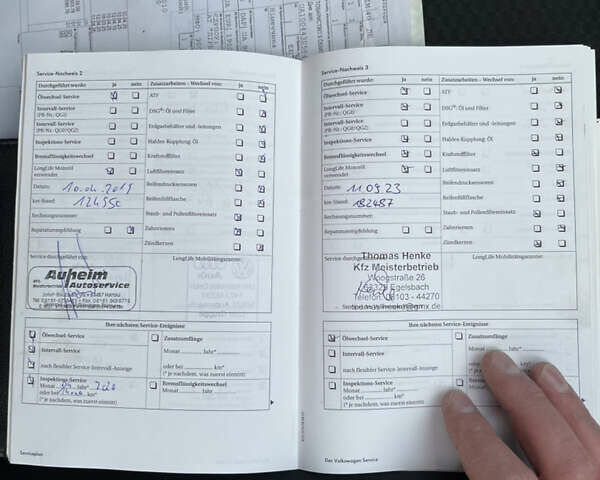 Service-Nachweis 2
Durchgeführt wurde: Ja nein
Ölwechsel-Service
Intervall-Service
(PR-Nr.: QGI)
Intervall-Service
(PR-Nr.: QGI/QG2)
Inspektions-Service
Bremsflüssigkeitswechsel
LongLife Motoröl
verwendet
Datum: 10.04.2019
km-Stand: 124550
Rechnungsnummer:
Reparaturempfehlung
Service durchgeführt von:
Zusatzarbeiten - Wechsel von: Ja nein
ATF
DSG®-Öl und Filter
Erdgasbehälter und -leitungen
Haldex Kupplung: Öl
Kraftstofffilter
Luftfiltereinsatz
Reifendruckssensoren
Reifenfüllflasche
Staub- und Pollenfiltereinsatz
Zahnriemen
Zündkerzen
LongLife Mobilitätsgarantie:
Auheim
Autoservice
Ihre nächsten Service-Ereignisse
Ölwechsel-Service
Intervall-Service
nach flexibler Service-Intervall-Anzeige
Inspektions-Service
Monat Jahr*
oder bei km*
(* je nachdem, was zuerst eintritt)
Zusatzumfänge
Monat Jahr*
oder bei km*
(* je nachdem, was zuerst eintritt)
Bremsflüssigkeitswechsel
Monat Jahr
Serviceplan
Service-Nachweis 3
Durchgeführt wurde: Ja nein
Ölwechsel-Service
Intervall-Service
(PR-Nr.: QGI)
Intervall-Service
(PR-Nr.: QGI/QG2)
Inspektions-Service
Bremsflüssigkeitswechsel
LongLife Motoröl
verwendet
Datum: 11 09 23
km-Stand: 182487
Rechnungsnummer:
Reparaturempfehlung
Service durchgeführt von:
Zusatzarbeiten - Wechsel von: Ja nein
ATF
DSG®-Öl und Filter
Erdgasbehälter und -leitungen
Haldex Kupplung: Öl
Kraftstofffilter
Luftfiltereinsatz
Reifendruckssensoren
Reifenfüllflasche
Staub- und Pollenfiltereinsatz
Zahnriemen
Zündkerzen
LongLife Mobilitätsgarantie:
Thomas Henke
Kfz Meisterbetrieb
Woogstraße 26
63329 Egelsbach
Telefon 06103 - 44270
Ihre nächsten Service-Ereignisse
Ölwechsel-Service
Intervall-Service
nach flexibler Service-Intervall-Anzeige
Inspektions-Service
Monat Jahr*
oder bei km*
(* je nachdem, was zuerst eintritt)
Zusatzumfänge
Monat Jahr*
oder bei
(* je nachdem, was
Bremsflüssigkeits
Monat
Der Volkswagen Service